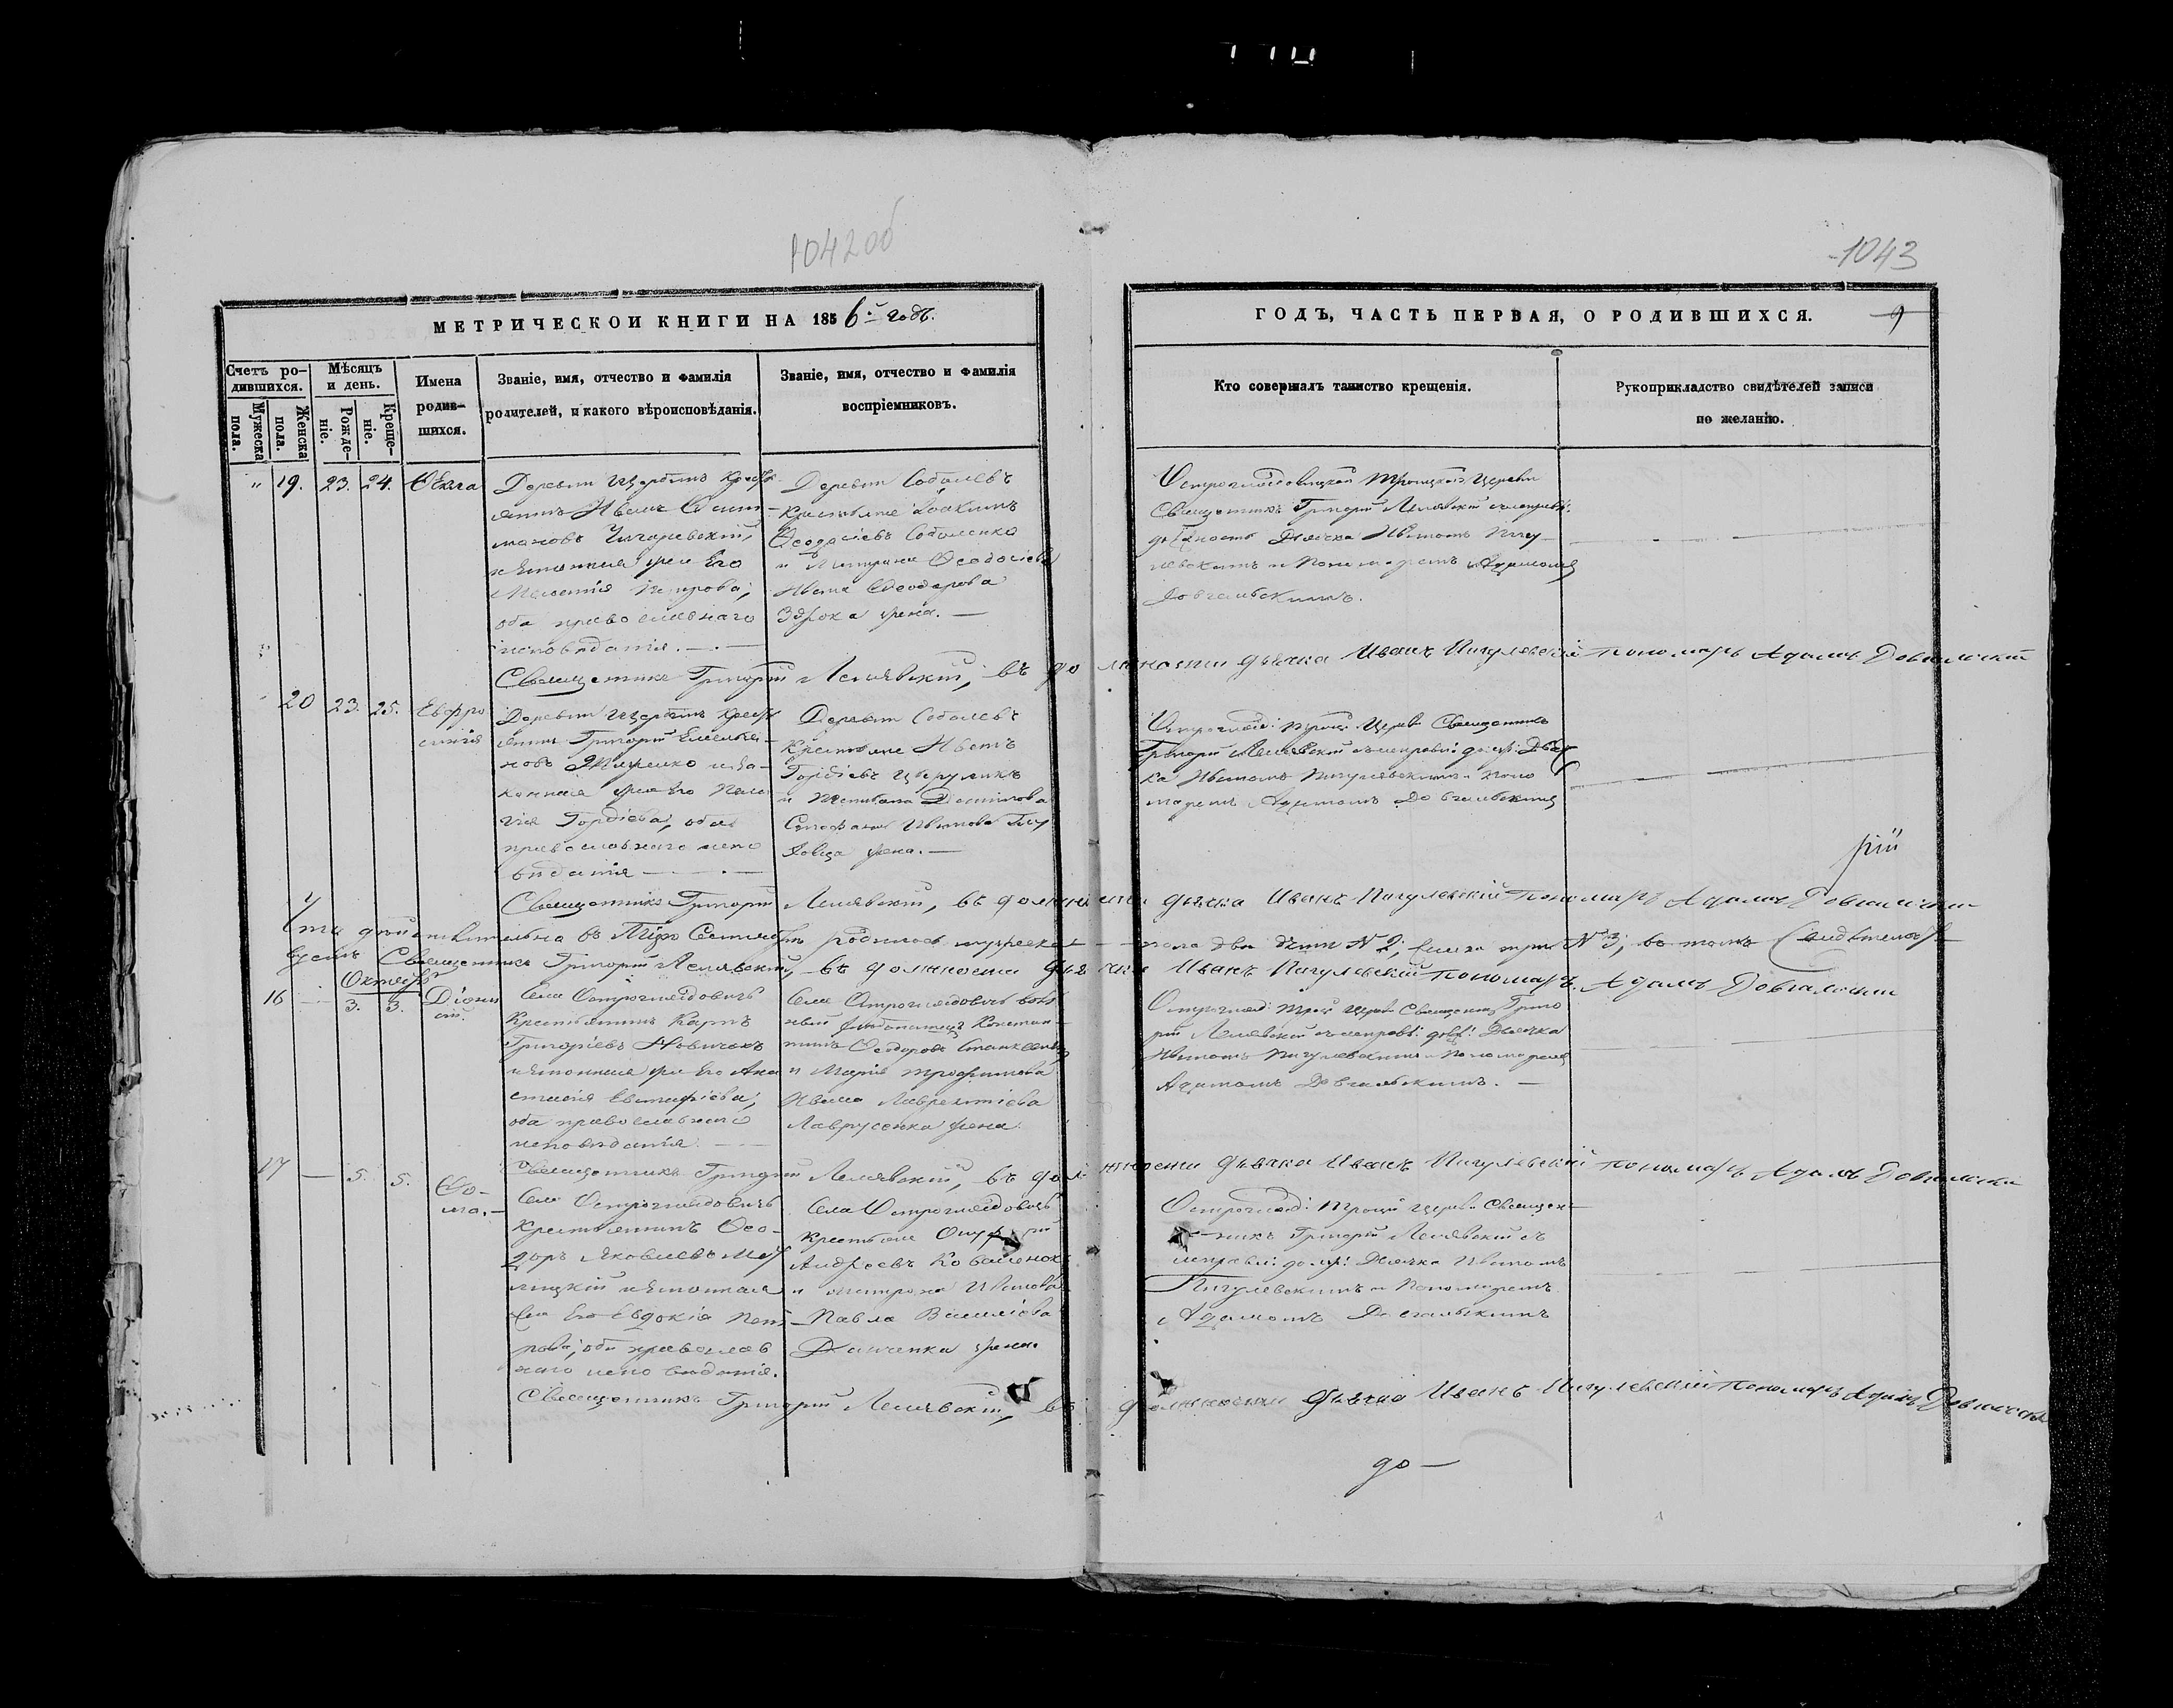 1042об
1043
МЕТРИЧЕСКОЙ КНИГИ НА 1856й годъ.
ГОДЪ, ЧАСТЬ ПЕРВАЯ, О РОДИВШИХСЯ.
9
Счетъ ро-
дившихся.
Мужеска
пола.
Женска
пола.
Мѣсяцъ
и день.
Рожде-
ніе.
Креще-
ніе.
Имена
родив-
шихся.
Званіе, имя, отчество и фамилія
родителей, и какого вѣроисповѣданія.
Званіе, имя, отчество и фамилія
воспріемниковъ.
Кто совершалъ таинство крещенія.
Рукоприкладство свидѣтелей записи
по желанію.
" 19. 23. 24. Ѳекла
Деревни Щербинъ Кресть
янинъ Иванъ
и законная жена Его
Петрова,
оба православнаго
исповѣданія.
Деревни Соболевъ
Крестьяне
Ѳеодосіевъ Соболенко
и Матрона Ѳеодосіева
Ивана Ѳеодорова
жена.
Троицкой Церкви
Священникъ Григорій Лелявскій съ исправл:
должность Дьячка Иваномъ Пигу
левскимъ и Пономаремъ Адамомъ
Довгяльскимъ.
Священникъ Григорій Лелявскій, въ должности дьячка Иванъ Пигулевскій пономарь Адамъ Довгялскій
20 23. 25. Евфро
синія
Деревни Щербинъ Кресть
янинъ Григорій Емелья
новъ и за-
конная жена Его Пела
гія Гордіева, оба
православнаго испо
вѣданія
Деревни Соболевъ
Крестьяне Иванъ
Гордіевъ Цыруликъ
и
Стефана Иванова
жена.
Троиц: Церкви Священникъ
Григорій Лелявскій съ исправл: долж: Дьяч
ка Иваномъ Пигулевскимъ и Поно
маремъ Адамомъ Довгяльскимъ
рій
Священникъ Григорій Лелявскій, въ должности дьячка Иванъ Пигулевскій пономарь Адамъ Довгялскій
Что дѣйствительно въ М-цѣ Сентябрѣ родилось мужеска пола два N 2, женска три N 3; въ томъ свидѣтель
ствуемъ Священникъ Григорій Лелявскій, въ должности дьячка Иванъ Пигулевскій пономарь Адамъ Довгялскій
Октябрь
16 — 3. 3. Діони
сій.
Села Остроглядовичъ
Крестьянинъ Карпъ
Григоріевъ Новичокъ
и законная жена Его Ана
стасія Евстафіева,
оба православнаго
исповѣданія.
Села Остроглядовичъ
Констан
тинъ Ѳеодоровъ Станкевичъ
и Марія Трофимова
Ивана Лаврентіева
Лаврусенка жена.
Остроглад: Троиц: Церкви Священникъ Григо
рій Лелявскій съ исправл: долж: Дьячка
Иваномъ Пигулевскимъ и Пономаремъ
Адамомъ Довгяльскимъ.
Священникъ Григорій Лелявскій, въ должности дьячка Иванъ Пигулевскій пономарь Адамъ Довгялскій
17 — 5. 5. Ѳо-
ма.
Села Остроглядовичъ
Крестьянинъ Ѳео-
доръ Яковлевъ
и законная
жена Его Евдокія Пет
рова, оба православ
наго исповѣданія.
Села Остроглядовичъ
Крестьяне
Андреевъ Коваленокъ
и Матрона Иванова
Павла Василіева
жена.
Остроглад: Троиц: Церкви Священ-
никъ Григорій Лелявскій съ
исправл: долж: Дьячка Иваномъ
Пигулевскимъ и Пономаремъ
Адамомъ Довгяльскимъ
Священникъ Григорій Лелявскій, въ должности дьячка Иванъ Пигулевскій пономарь Адамъ Довгялскій
до —